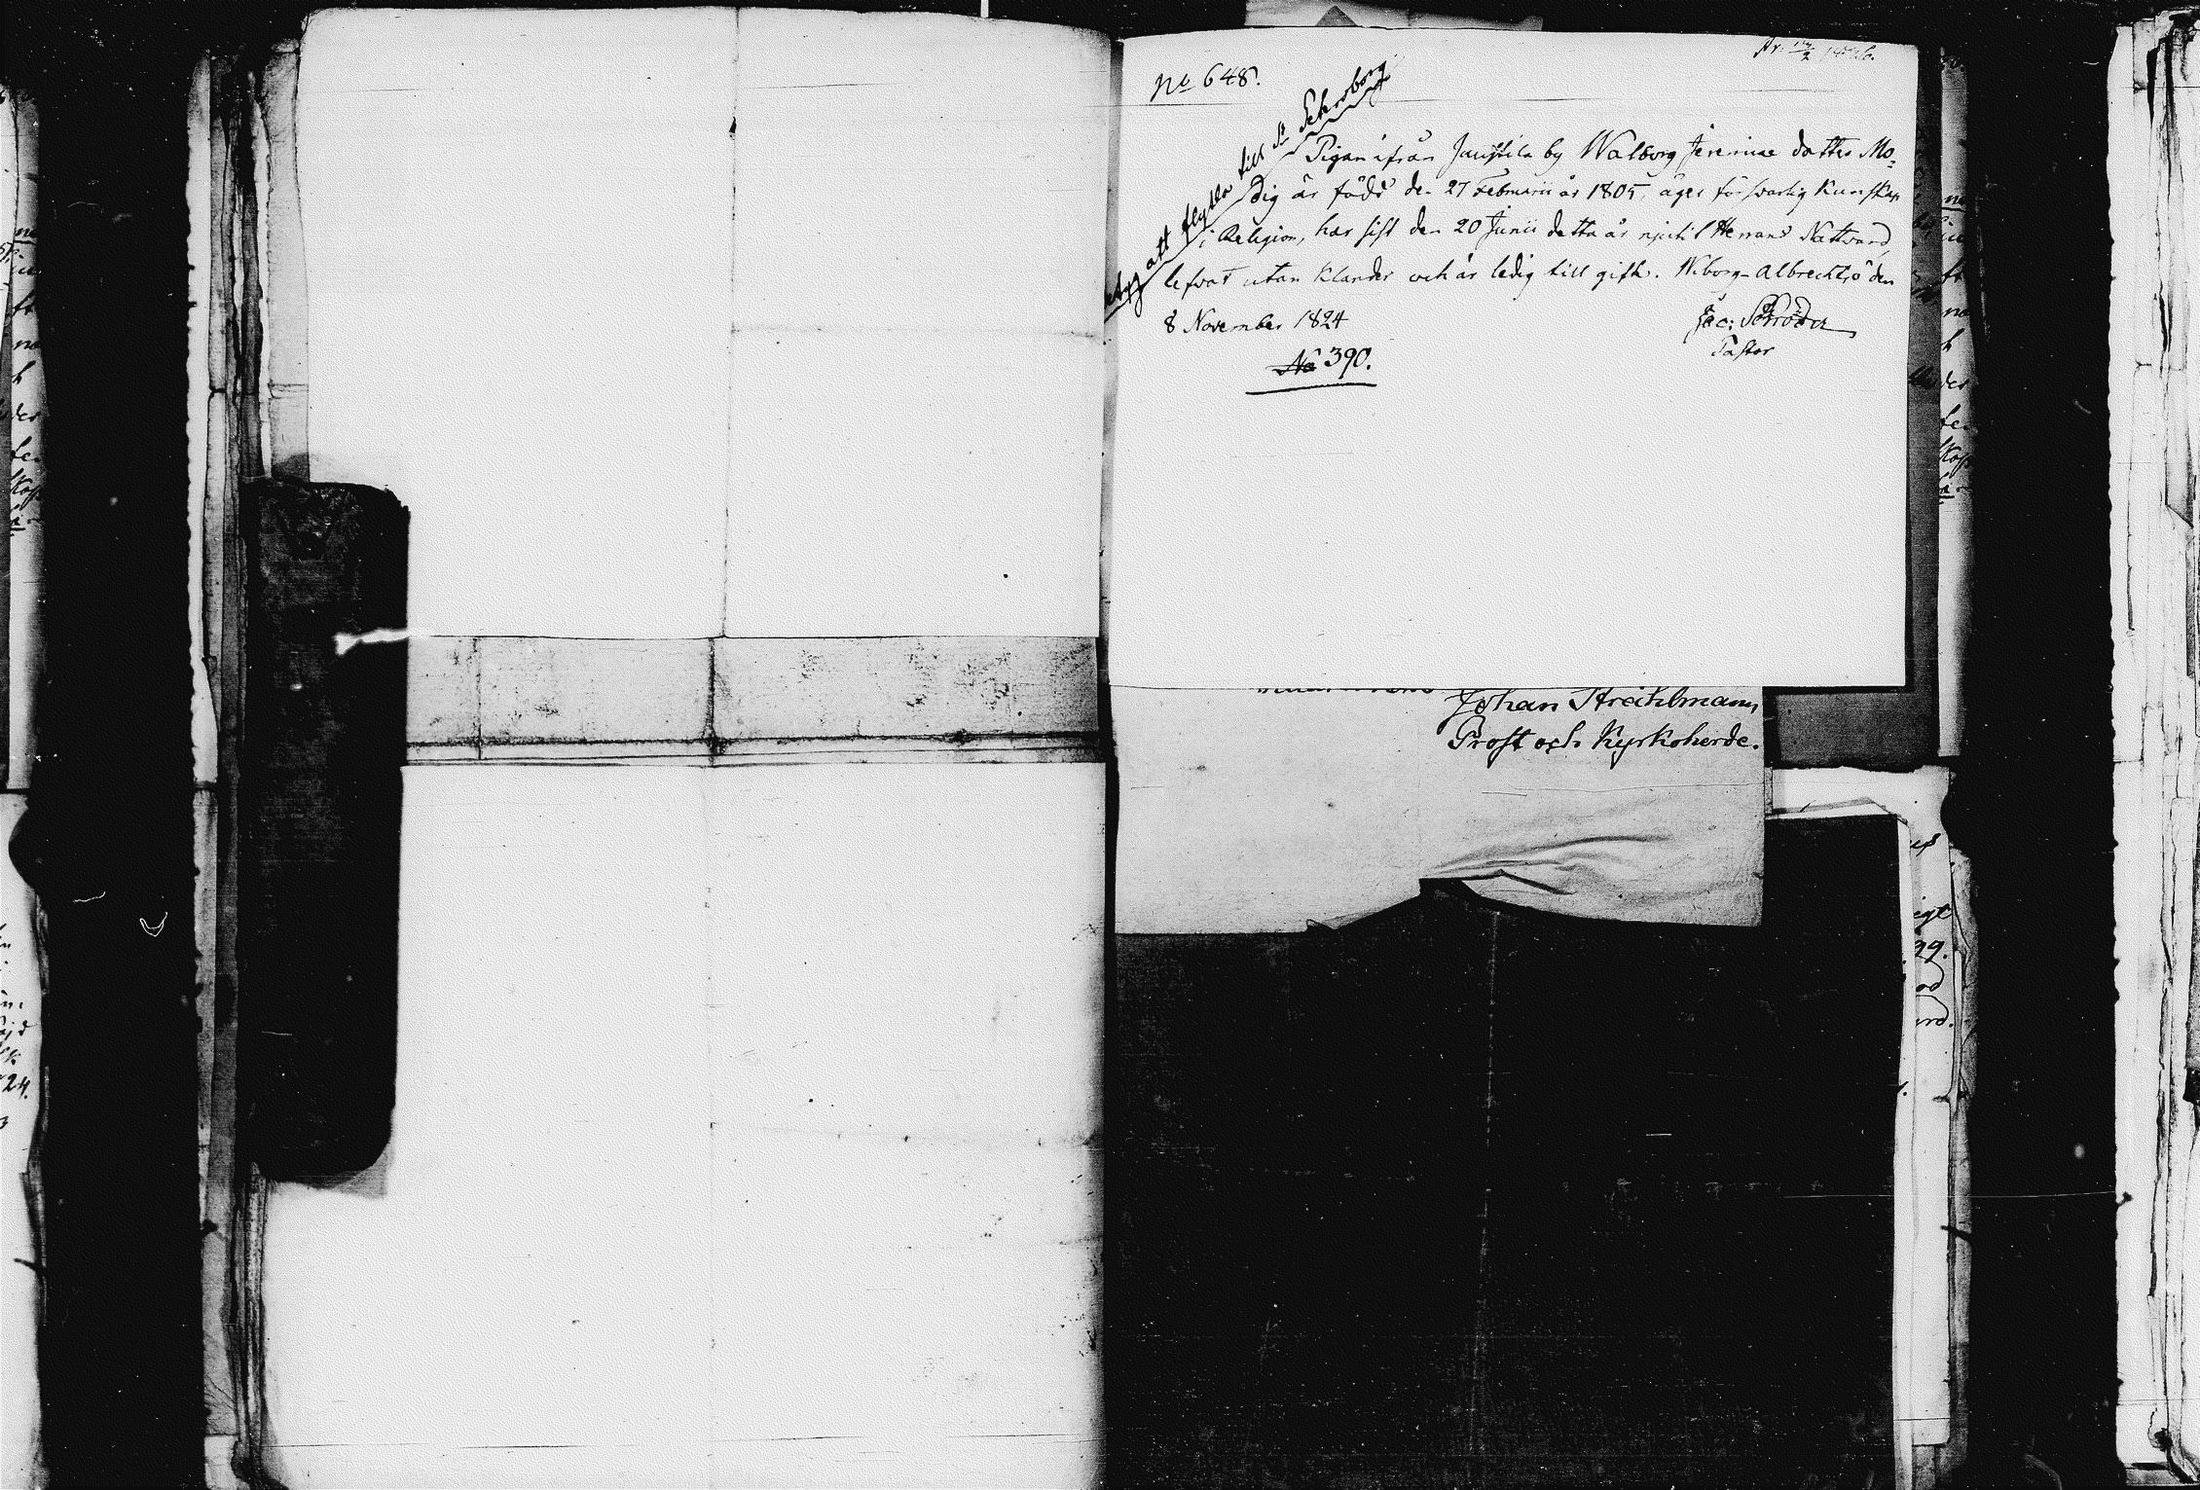 No 648.
betyg att flytta till St Petersborg
Pigan ifrån Juustila by Walborg Jeremiae dotter Mo-
dig är född den 27 Februarii år 1805, äger försvarlig Kunskap
i Religion, har sist den 20 Junii detta år njutit Herrans Nattvard,
lefvat utan Klander och är ledig till gifte. Wiborg Albrechtsö den
8 November 1824
Jac: Schröder
Pastor
No 390.
Johan Strählmann
Prost och Kyrkoherde.